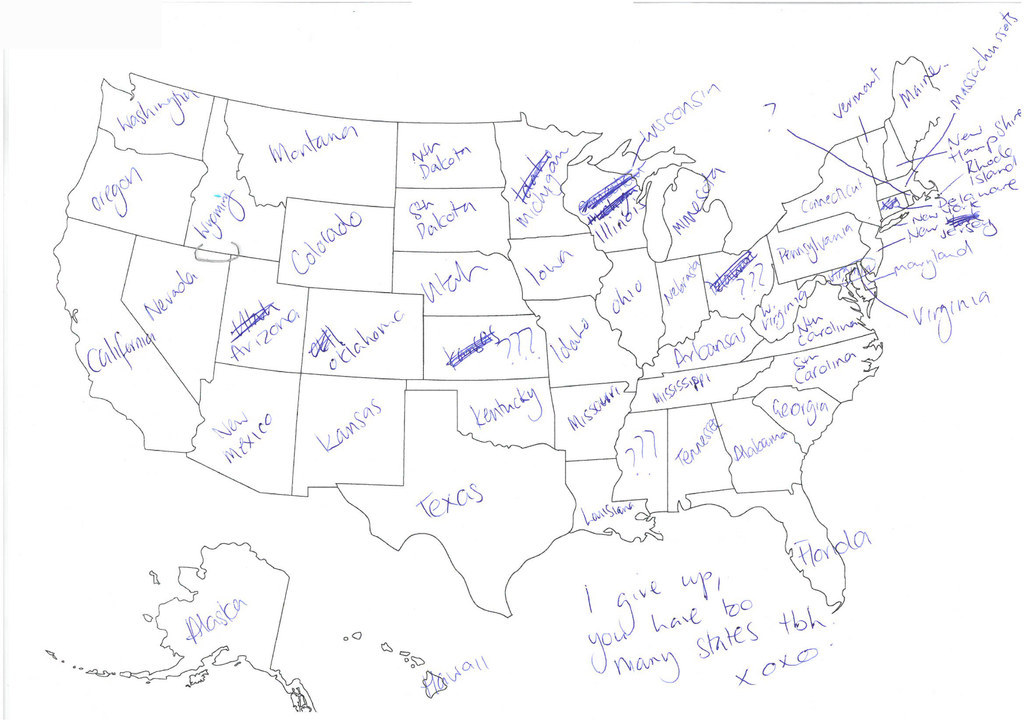 Washington
Montana
Nth
Dakota
Michigan
Wisconsin
Minnesota
?
Vermont
Maine
Massachussets
New
Hampshire
Rhode
Island
Delaware
New York
New Jersey
Maryland
Virginia
Oregon
Wyoming
Sth
Dakota
Illinois
Connecticut
Pennsylvania
Colorado
Utah
Iowa
Ohio
Nebraska
???
W.
Virginia
Nth
Carolina
California
Nevada
Arizona
Oklahoma
Kansas
???
Idaho
Arkansas
Sth
Carolina
New
Mexico
Kansas
Kentucky
Missouri
Mississippi
???
Tennessee
Alabama
Georgia
Texas
Louisiana
Florida
Alaska
Hawaii
I give up,
you have too
many states tbh.
xoxo.